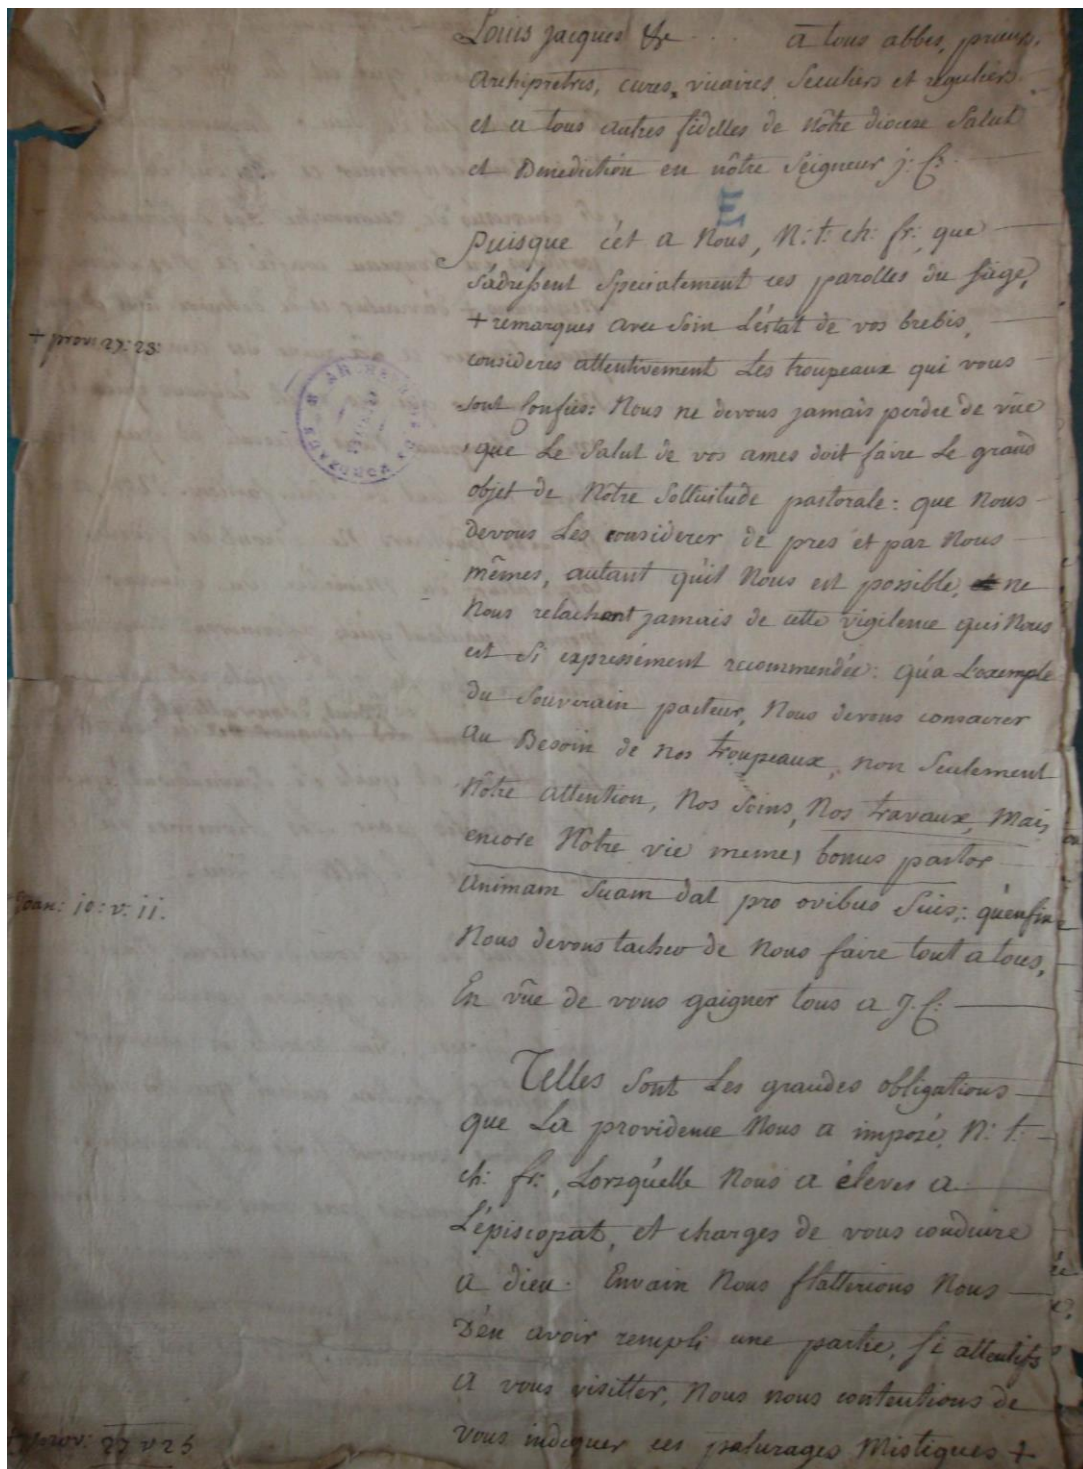 Louis jacques &c ... a tous abbes, prieurs,
archipretres, cures, vicaires seculiers et reguliers
et a tous autres fidelles de nôtre diocese Salut
et Benediction en nôtre Seigneur j: C:
E
puisque c'ét a Nous, N: t: ch: fr: que
s'adressent specialement ces parolles du sage,
+ remarques avec soin L'éstat de vos brebis,
+ prov. 27: 23:
consideres attentivement Les troupeaux qui vous
sont confiés: Nous ne devons jamais perdre de vûe
que Le Salut de vos ames doit faire Le grand
objet de Nôtre sollicitude pastorale: que Nous
devons Les considerer de prés et par Nous
mêmes, autant qu'il Nous est possible, ne
Nous relachant jamais de cette vigilence qui Nous
est si expressément recommendée: qu'a L'exemple
du souverain pasteur, Nous devons consacrer
au Besoin de nos troupeaux, non seulement
Nôtre attention, Nos soins, Nos travaux, Mais
encore Nôtre vie meme, bonus pastor
animam suam dat pro ovibus suis: qu'enfin
Joan: 10: v: 11.
Nous devons tacher de Nous faire tout a tous,
En vûe de vous gaigner tous a J. C:
Telles sont Les grandes obligations
que La providence Nous a imposé, N: t:
ch: fr:, Lorsqu'elle Nous a élevés a
L'épiscopat, et charges de vous conduire
a dieu. Envain Nous flatterions Nous
D'en avoir rempli une partie, si attentifs
a vous visitter, Nous nous contentions de
vous indiquer ces paturages Mistiques +
prov: 27 v 25